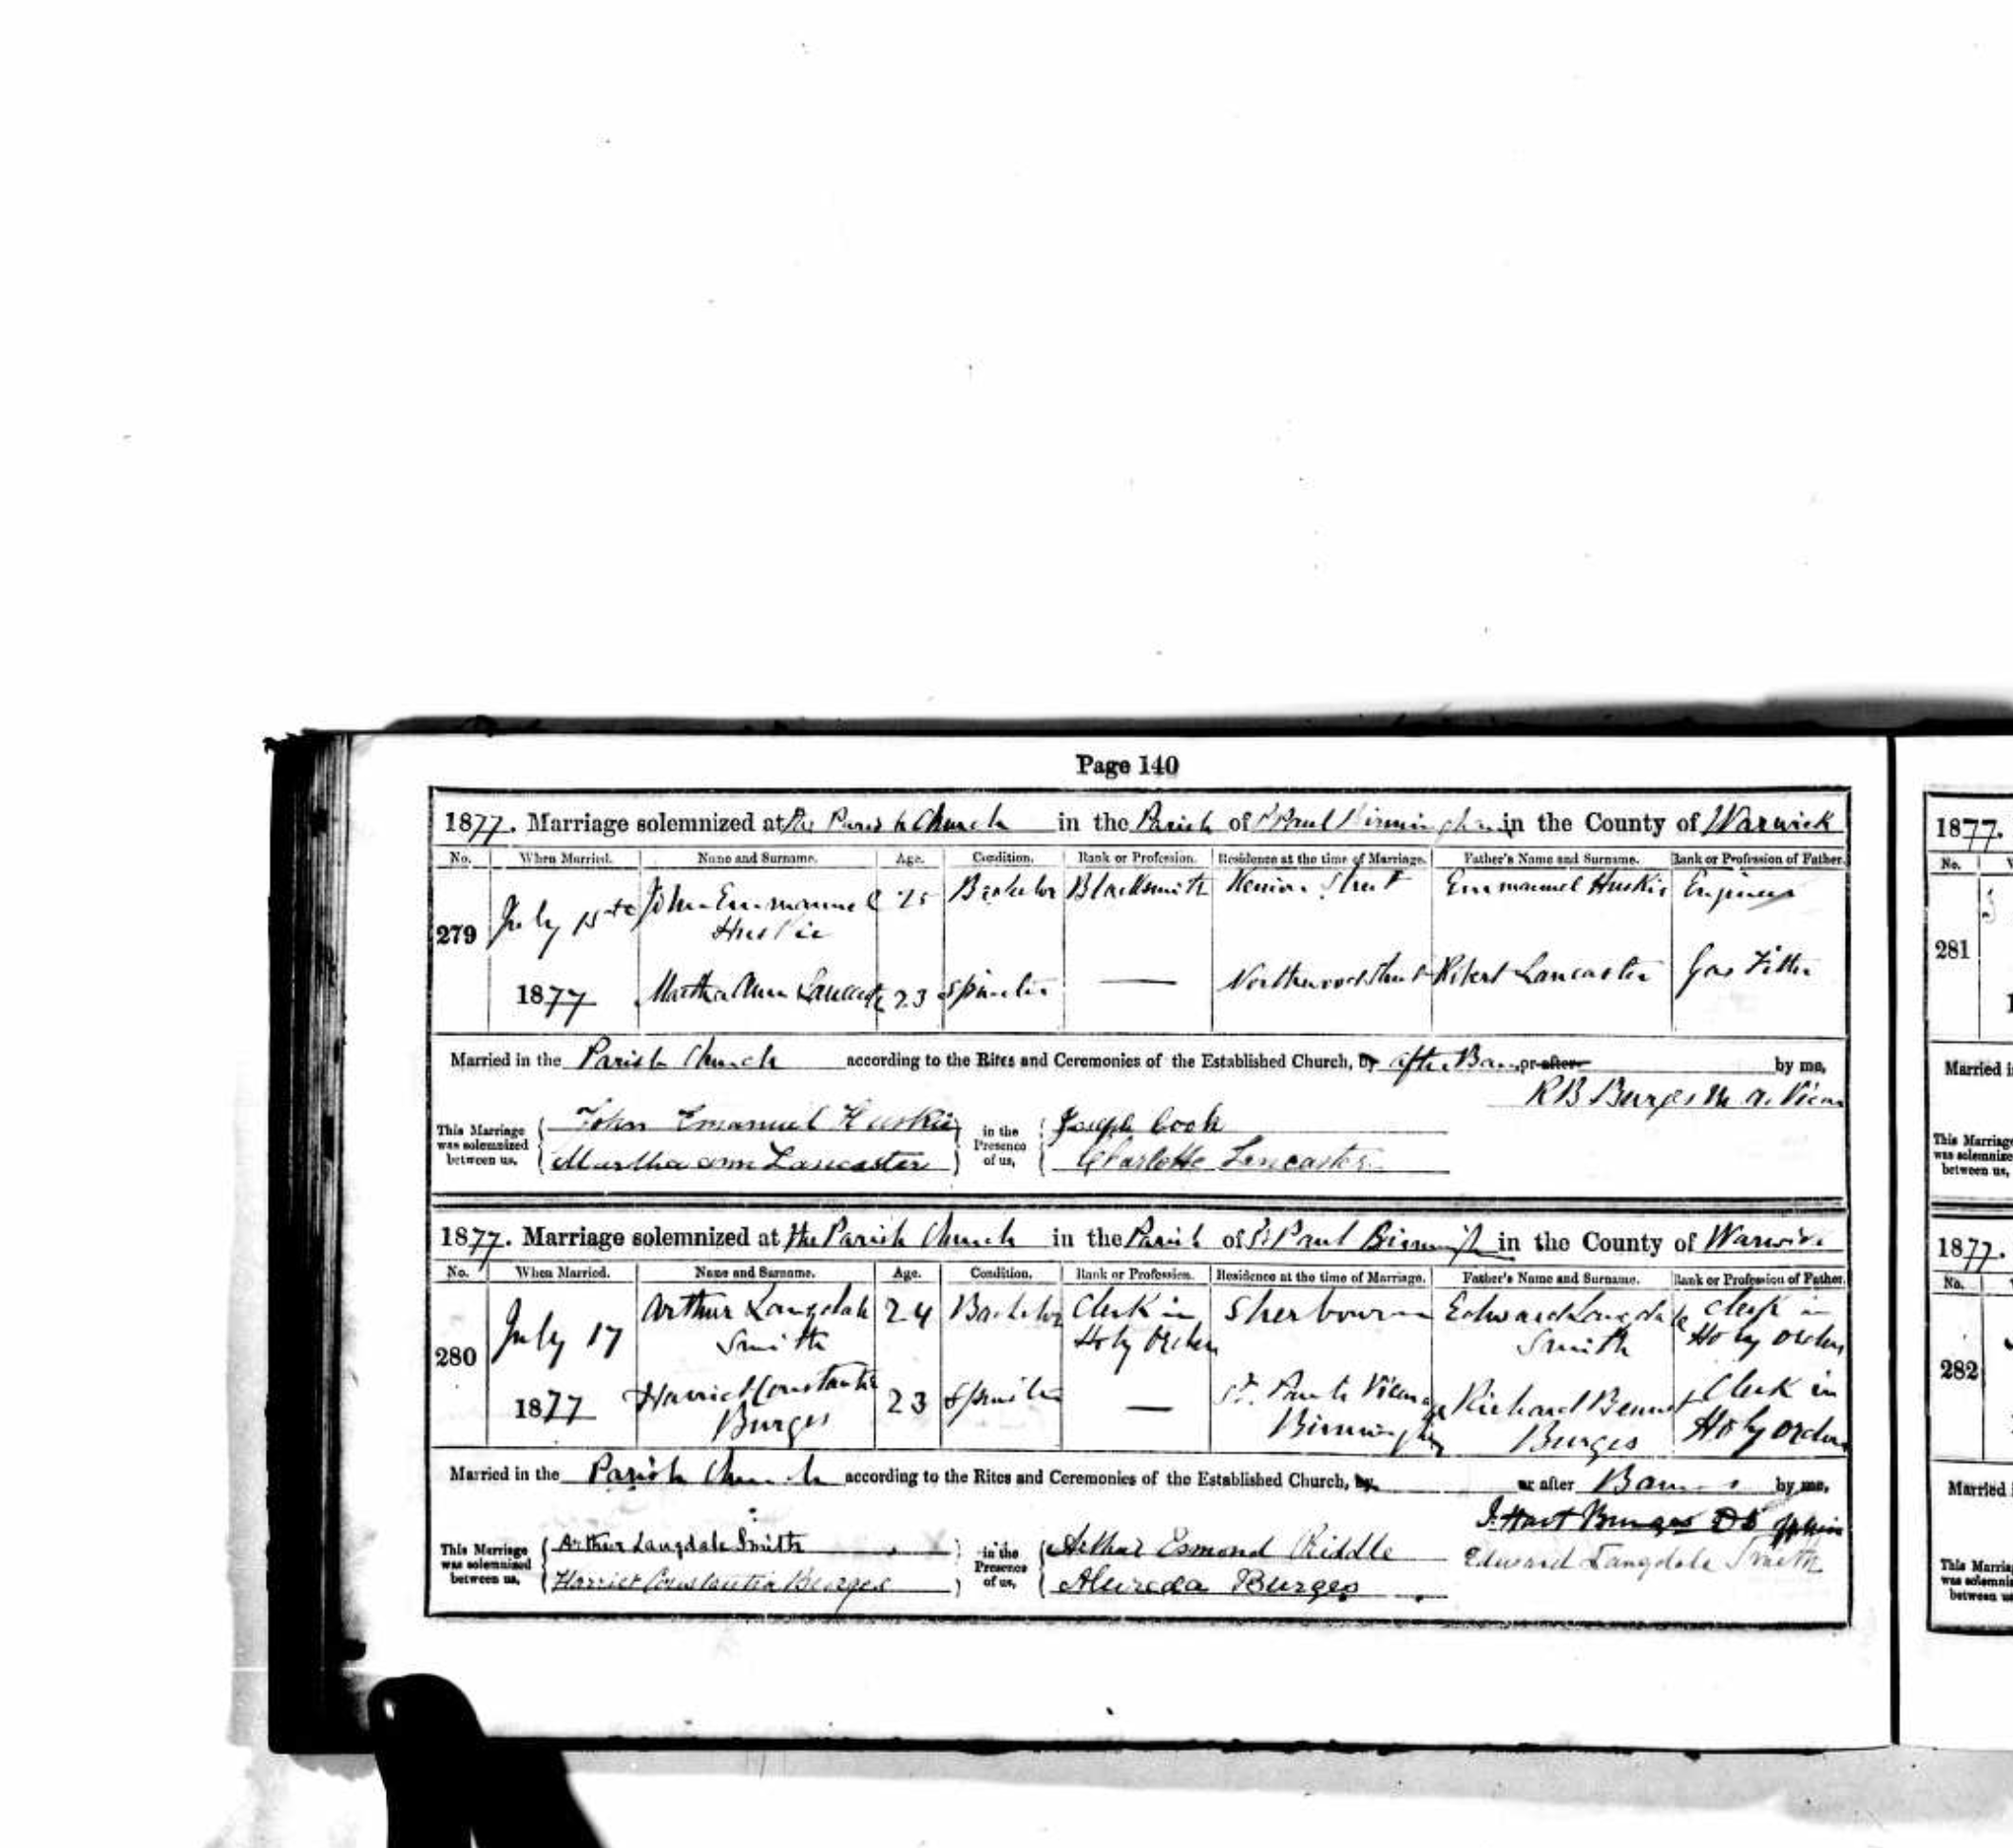 Page 140
1877. Marriage solemnized at the Parish Church in the Parish of St Paul Birmingham in the County of Warwick
No. When Married. Name and Surname. Age. Condition. Rank or Profession. Residence at the time of Marriage. Father's Name and Surname. Rank or Profession of Father.
279 July 15th 1877 John Emmanuel Huskie 25 Bachelor Blacksmith Street Emmanuel Huskie Engineer
Martha Ann Lancaster 23 Spinster — Northwood Street Robert Lancaster Gas Fitter
Married in the Parish Church according to the Rites and Ceremonies of the Established Church, by after Banns or after by me,
R B Burges M.A. Vicar
This Marriage was solemnized between us, John Emanuel Huskie in the Presence of us, Joseph Cook
Martha ann Lancaster Charlotte Lancaster
1877. Marriage solemnized at the Parish Church in the Parish of St Paul Birmingham in the County of Warwick
No. When Married. Name and Surname. Age. Condition. Rank or Profession. Residence at the time of Marriage. Father's Name and Surname. Rank or Profession of Father.
280 July 17 1877 Arthur Langdale Smith 24 Bachelor Clerk in Holy Orders Sherbourne Edward Langdale Smith Clerk in Holy Orders
Harriet Constantia Burges 23 Spinster — St. Paul's Vicarage Birmingham Richard Bennet Burges Clerk in Holy Orders
Married in the Parish Church according to the Rites and Ceremonies of the Established Church, by or after Banns by me,
J. Hart Burges DD
Edward Langdale Smith
This Marriage was solemnized between us, Arthur Langdale Smith in the Presence of us, Arthur Esmond Riddle
Harriet Constantia Burges Burges
1877.
No.
281
Married i
This Marriage
was solemnize
between us,
1877.
No.
282
Married
This Marria
was solemni
between us